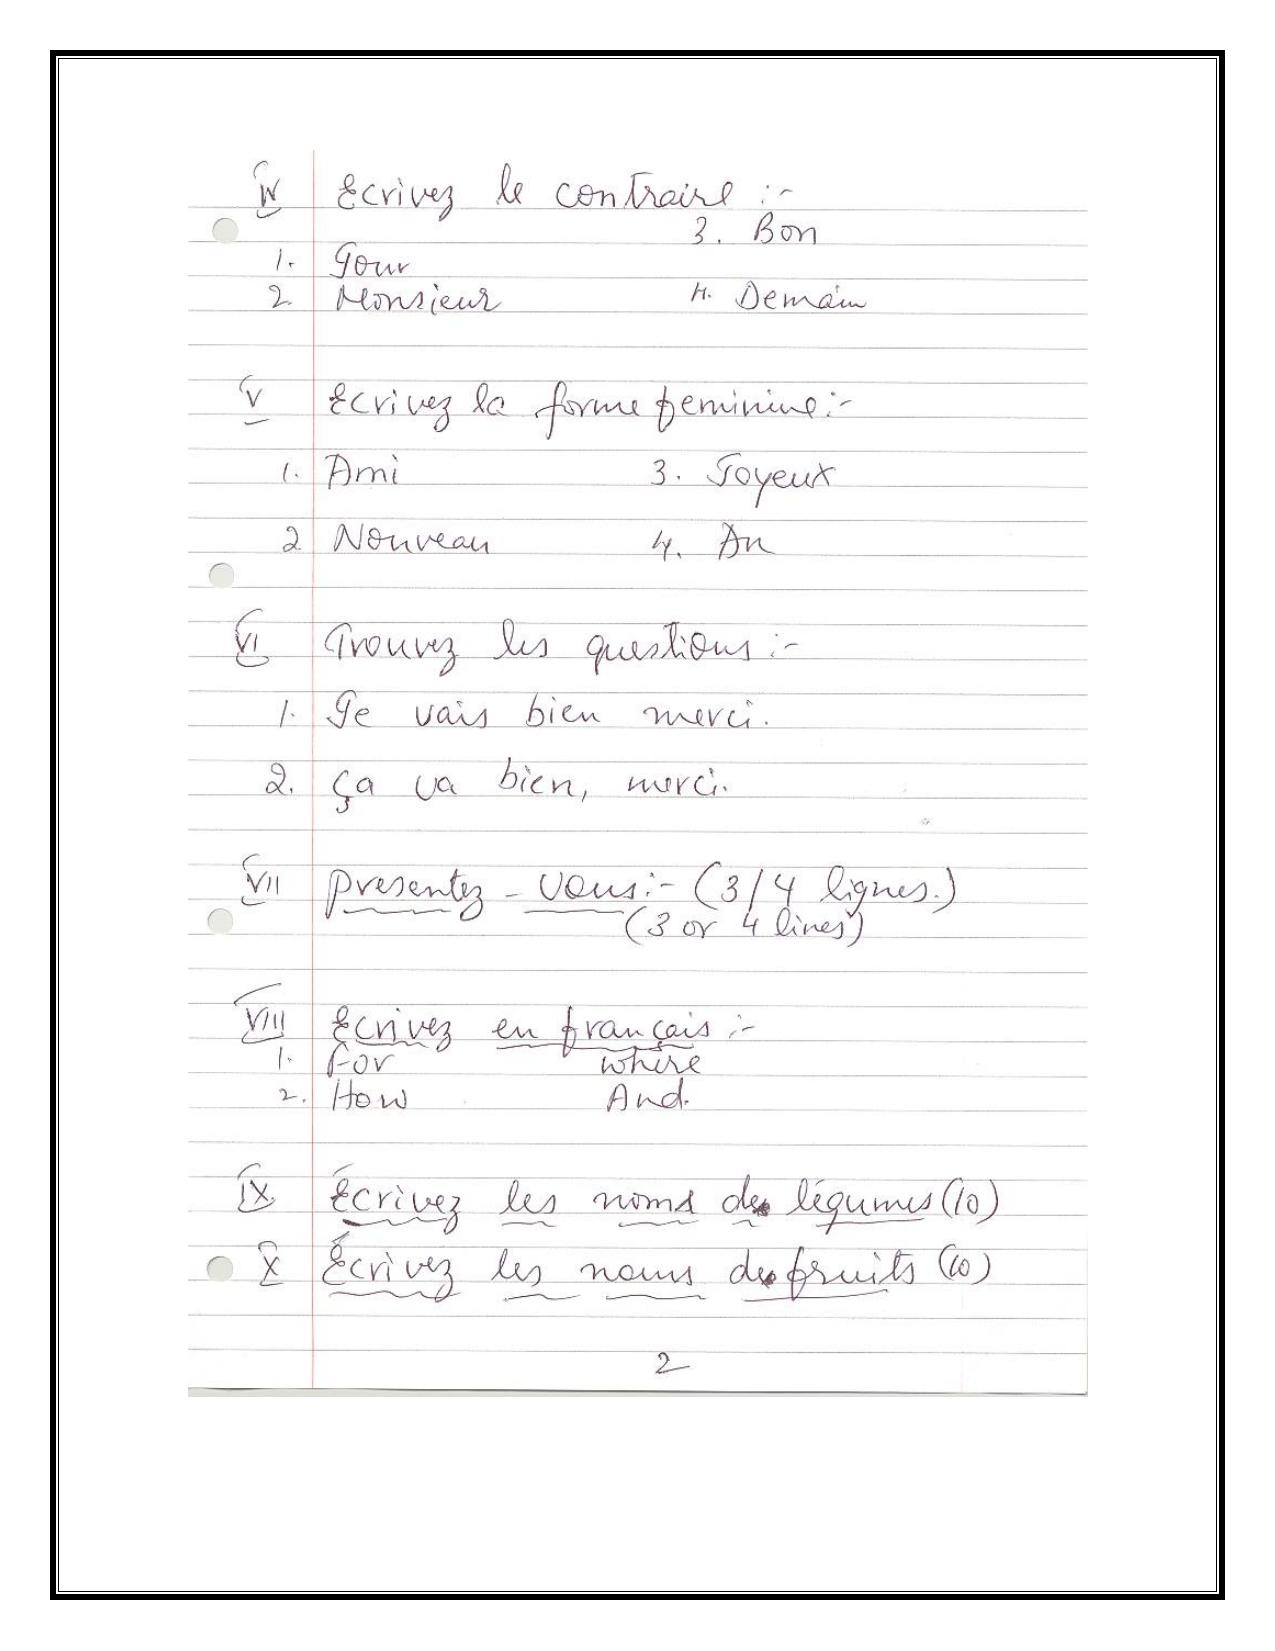 IV Ecrivez le contraire :-
3. Bon
1. Jour
2. Monsieur 4. Demain
V Ecrivez la forme feminine:-
1. Ami 3. Joyeux
2 Nouveau 4. An
VI Trouvez les questions :-
1. Je vais bien merci.
2. Ça va bien, merci.
VII Presentez-vous:- (3/4 lignes.)
(3 or 4 lines)
VIII Ecrivez en français :-
1. For where
2. How And.
IX Écrivez les noms de légumes (10)
X Écrivez les noms de fruits (10)
2